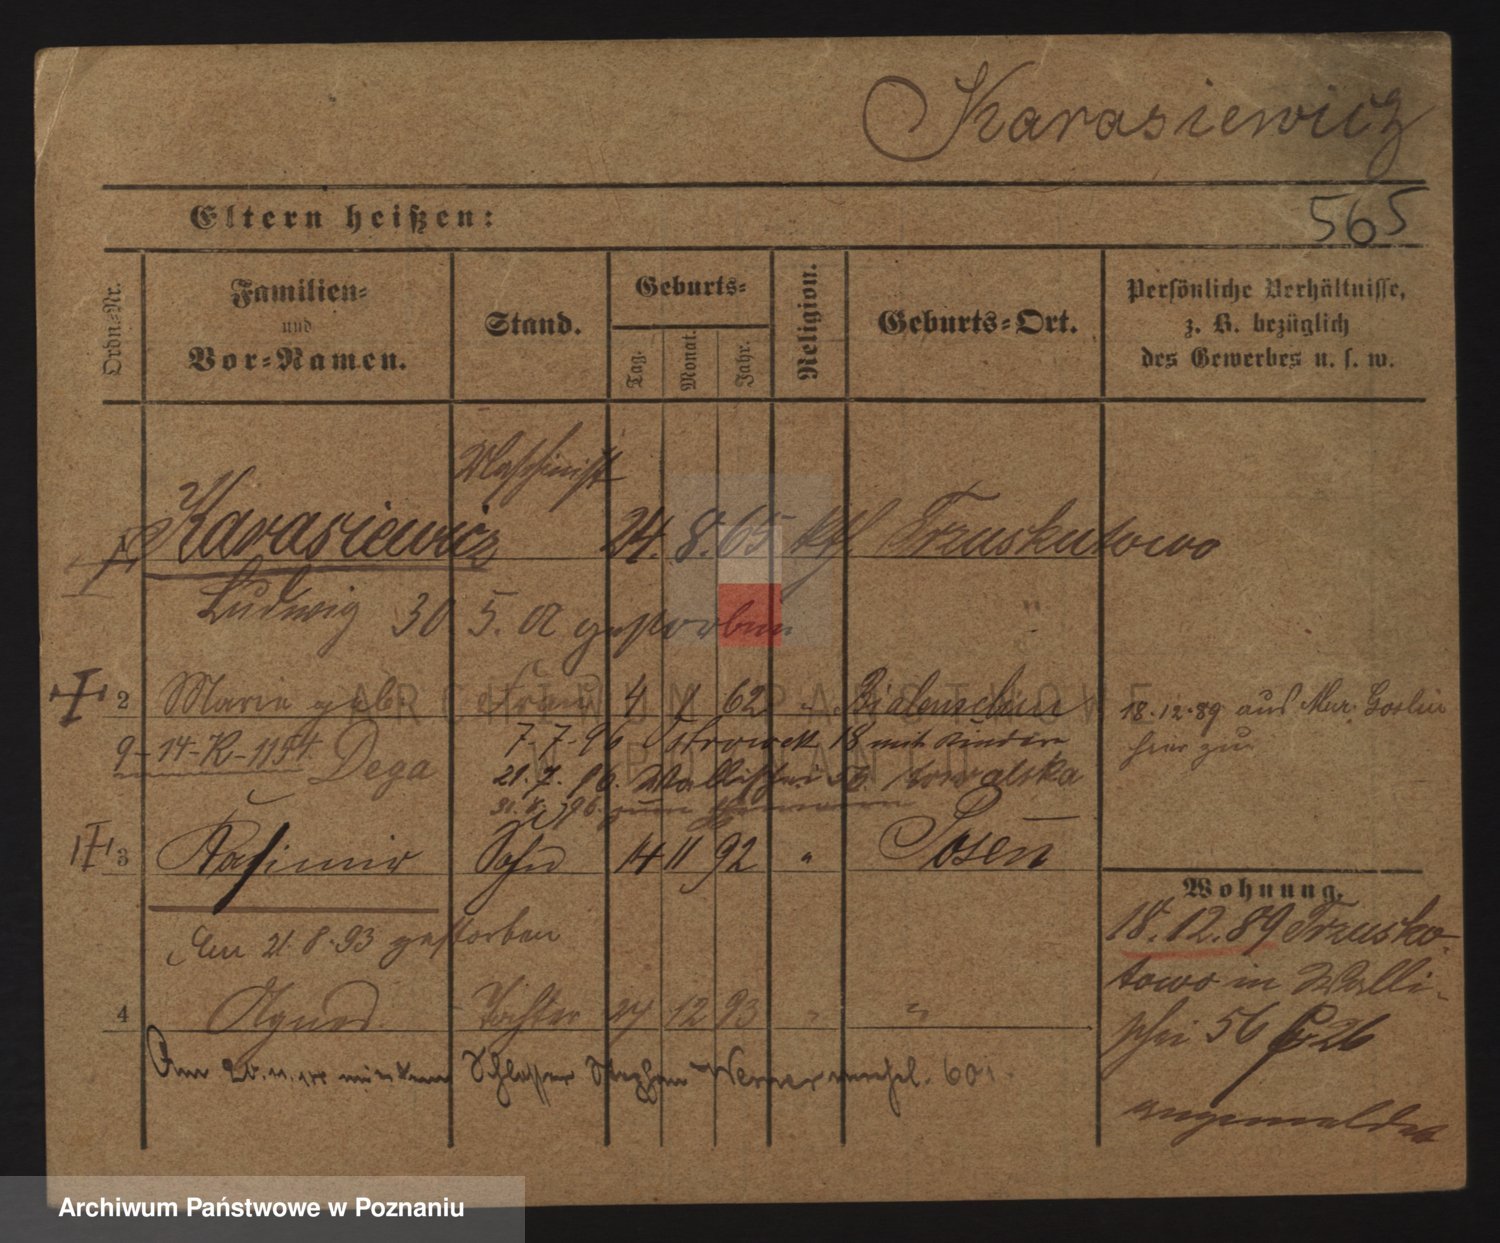 Karasiewicz
565
Eltern heißen:
Ordn.-Nr.
Familien-
und
Vor-Namen.
Stand.
Geburts-
Tag.
Monat.
Jahr.
Religion.
Geburts-Ort.
Persönliche Verhältnisse,
z. B. bezüglich
des Gewerbes u. s. w.
Maschinist
1 Karasiewicz 24. 8. 65 kth. Trzuskutowo
Ludwig 30. 5. 02 gestorben "
2 Marie geb. Frau 4 1 62 " 18.12.89 aus Mur. Goslin
9-14-K-1154. Dega 7-7-96 18 mit Kindern
hier zu
21. 7. 96. Wallischei
31. 96. zum
3 Kasimir Sohn 14 11 92 " Posen
Wohnung.
Am 21.8.93 gestorben
18.12.89 Trzusko-
towo in Walli-
4 Agnes Tochter 27 12 93 " "
schei 56
Am 20. 11. mit dem Schlosser Stephan Werner verehel.
angemeldet
ARCHIWUM PAŃSTWOWE
W POZNANIU
Archiwum Państwowe w Poznaniu